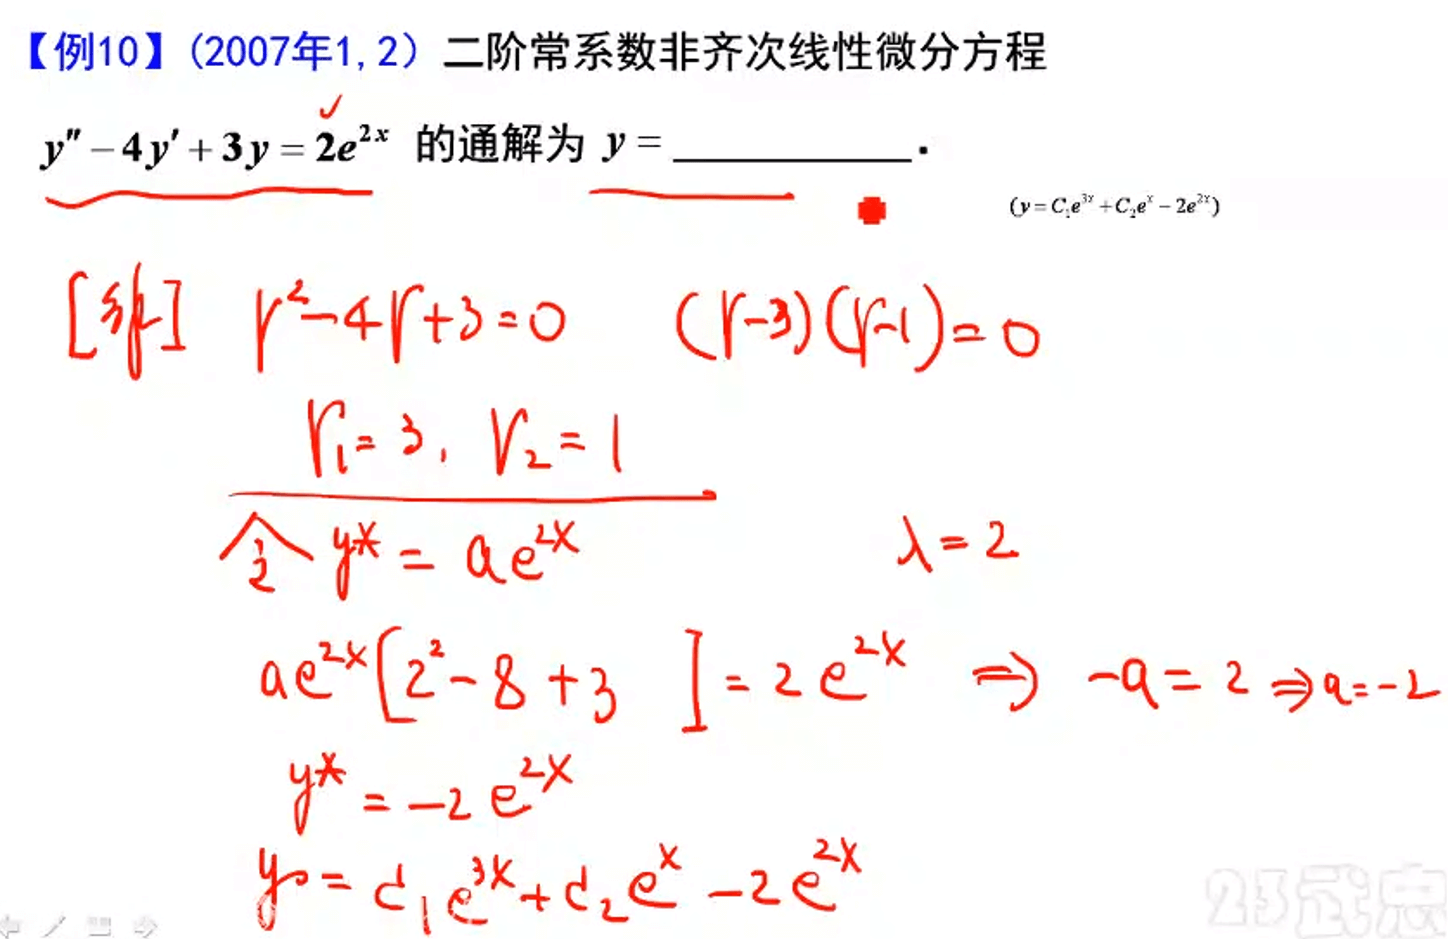 【例10】(2007年1,2) 二阶常系数非齐次线性微分方程
y″ − 4y′ + 3y = 2e^{2x} 的通解为 y = ________.
(y = C₁e^{3x} + C₂e^x − 2e^{2x})
[解] r² − 4r + 3 = 0 (r−3)(r−1) = 0
r₁ = 3, r₂ = 1
令 y* = ae^{2x} λ = 2
ae^{2x}[2² − 8 + 3 ] = 2e^{2x} ⇒ −a = 2 ⇒ a = −2
y* = −2e^{2x}
y = C₁e^{3x} + C₂e^x − 2e^{2x}
23武忠